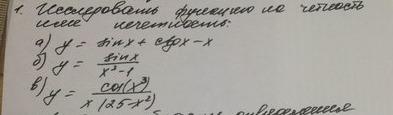 1. Исследовать функцию на четность
или нечетность:
а) y = sinx + ctgx - x
б) y = sinx / x²-1
в) y = cos(x³) / x(25-x²)